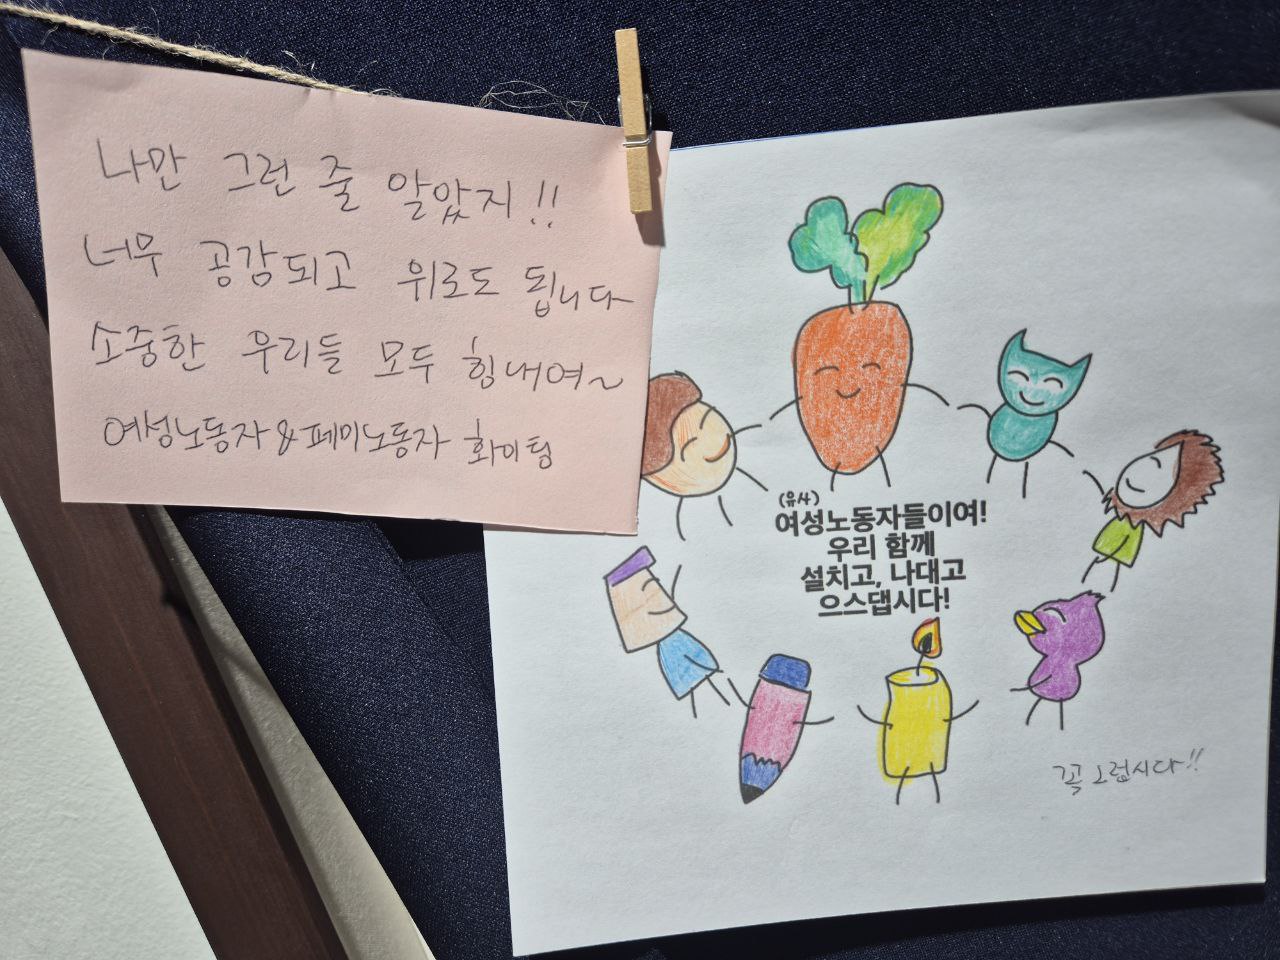 나만 그런 줄 알았지!!
너무 공감되고 위로도 됩니다
소중한 우리들 모두 힘내여~
여성노동자&페미노동자 화이팅
(유사)
여성노동자들이여!
우리 함께
설치고, 나대고
으스댑시다!
꼭 그럽시다!!